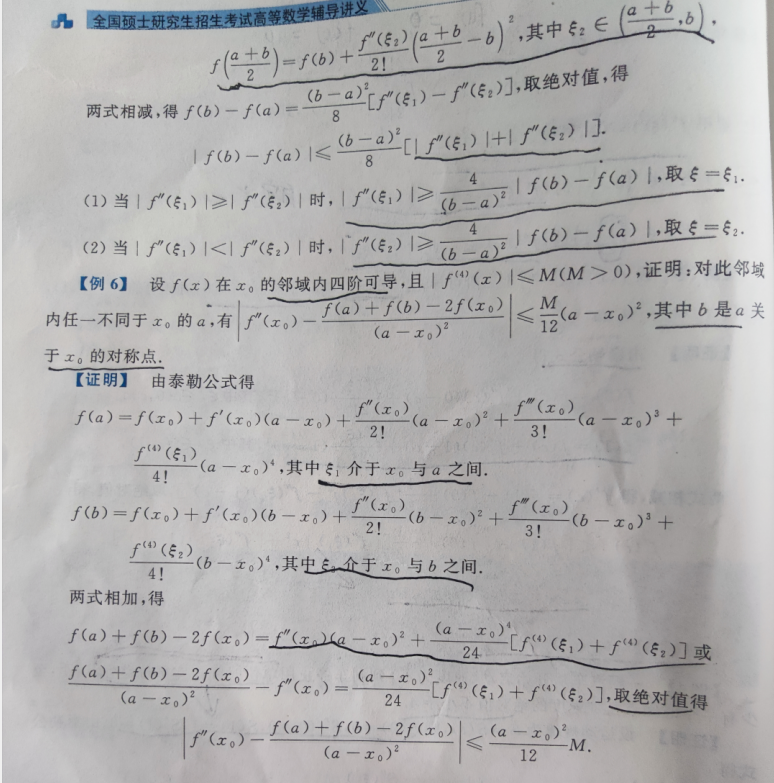 全国硕士研究生招生考试高等数学辅导讲义
f((a+b)/2)=f(b)+f″(ξ₂)/2!((a+b)/2-b)²,其中 ξ₂∈((a+b)/2,b),
两式相减,得 f(b)-f(a)=(b-a)²/8[f″(ξ₁)-f″(ξ₂)],取绝对值,得
|f(b)-f(a)|≤(b-a)²/8[|f″(ξ₁)|+|f″(ξ₂)|].
(1) 当|f″(ξ₁)|≥|f″(ξ₂)|时,|f″(ξ₁)|≥4/(b-a)²|f(b)-f(a)|,取 ξ=ξ₁.
(2) 当|f″(ξ₁)|<|f″(ξ₂)|时,|f″(ξ₂)|≥4/(b-a)²|f(b)-f(a)|,取 ξ=ξ₂.
【例 6】 设 f(x) 在 x₀ 的邻域内四阶可导,且|f⁽⁴⁾(x)|≤M(M>0),证明:对此邻域
内任一不同于 x₀ 的 a,有|f″(x₀)-(f(a)+f(b)-2f(x₀))/(a-x₀)²|≤M/12(a-x₀)²,其中 b 是 a 关
于 x₀ 的对称点.
【证明】 由泰勒公式得
f(a)=f(x₀)+f′(x₀)(a-x₀)+f″(x₀)/2!(a-x₀)²+f‴(x₀)/3!(a-x₀)³+
f⁽⁴⁾(ξ₁)/4!(a-x₀)⁴,其中 ξ₁ 介于 x₀ 与 a 之间.
f(b)=f(x₀)+f′(x₀)(b-x₀)+f″(x₀)/2!(b-x₀)²+f‴(x₀)/3!(b-x₀)³+
f⁽⁴⁾(ξ₂)/4!(b-x₀)⁴,其中 ξ₂ 介于 x₀ 与 b 之间.
两式相加,得
f(a)+f(b)-2f(x₀)=f″(x₀)(a-x₀)²+(a-x₀)⁴/24[f⁽⁴⁾(ξ₁)+f⁽⁴⁾(ξ₂)]或
(f(a)+f(b)-2f(x₀))/(a-x₀)²-f″(x₀)=(a-x₀)²/24[f⁽⁴⁾(ξ₁)+f⁽⁴⁾(ξ₂)],取绝对值得
|f″(x₀)-(f(a)+f(b)-2f(x₀))/(a-x₀)²|≤(a-x₀)²/12 M.